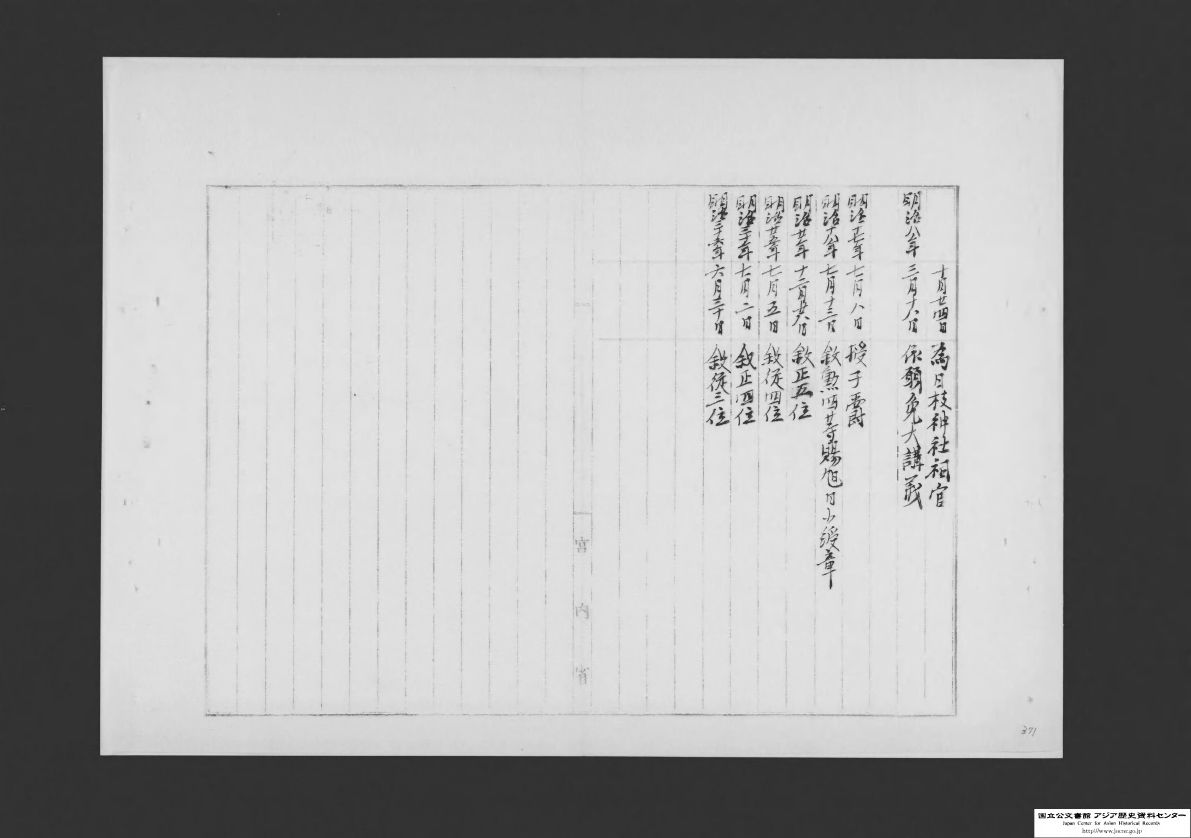 十月廿四日 為日枝神社祠官
明治八年 三月十八日 依願免大講義
明治十七年 七月八日 授子爵
明治十八年 七月十三日 敘勲四等賜旭日小綬章
明治廿年 十二月廿八日 敘正五位
明治廿五年 七月五日 敘従四位
明治三十年 七月二日 敘正四位
明治三十五年 六月三十日 敘従三位
宮内省
371
国立公文書館 アジア歴史資料センター
Japan Center for Asian Historical Records
http://www.jacar.go.jp